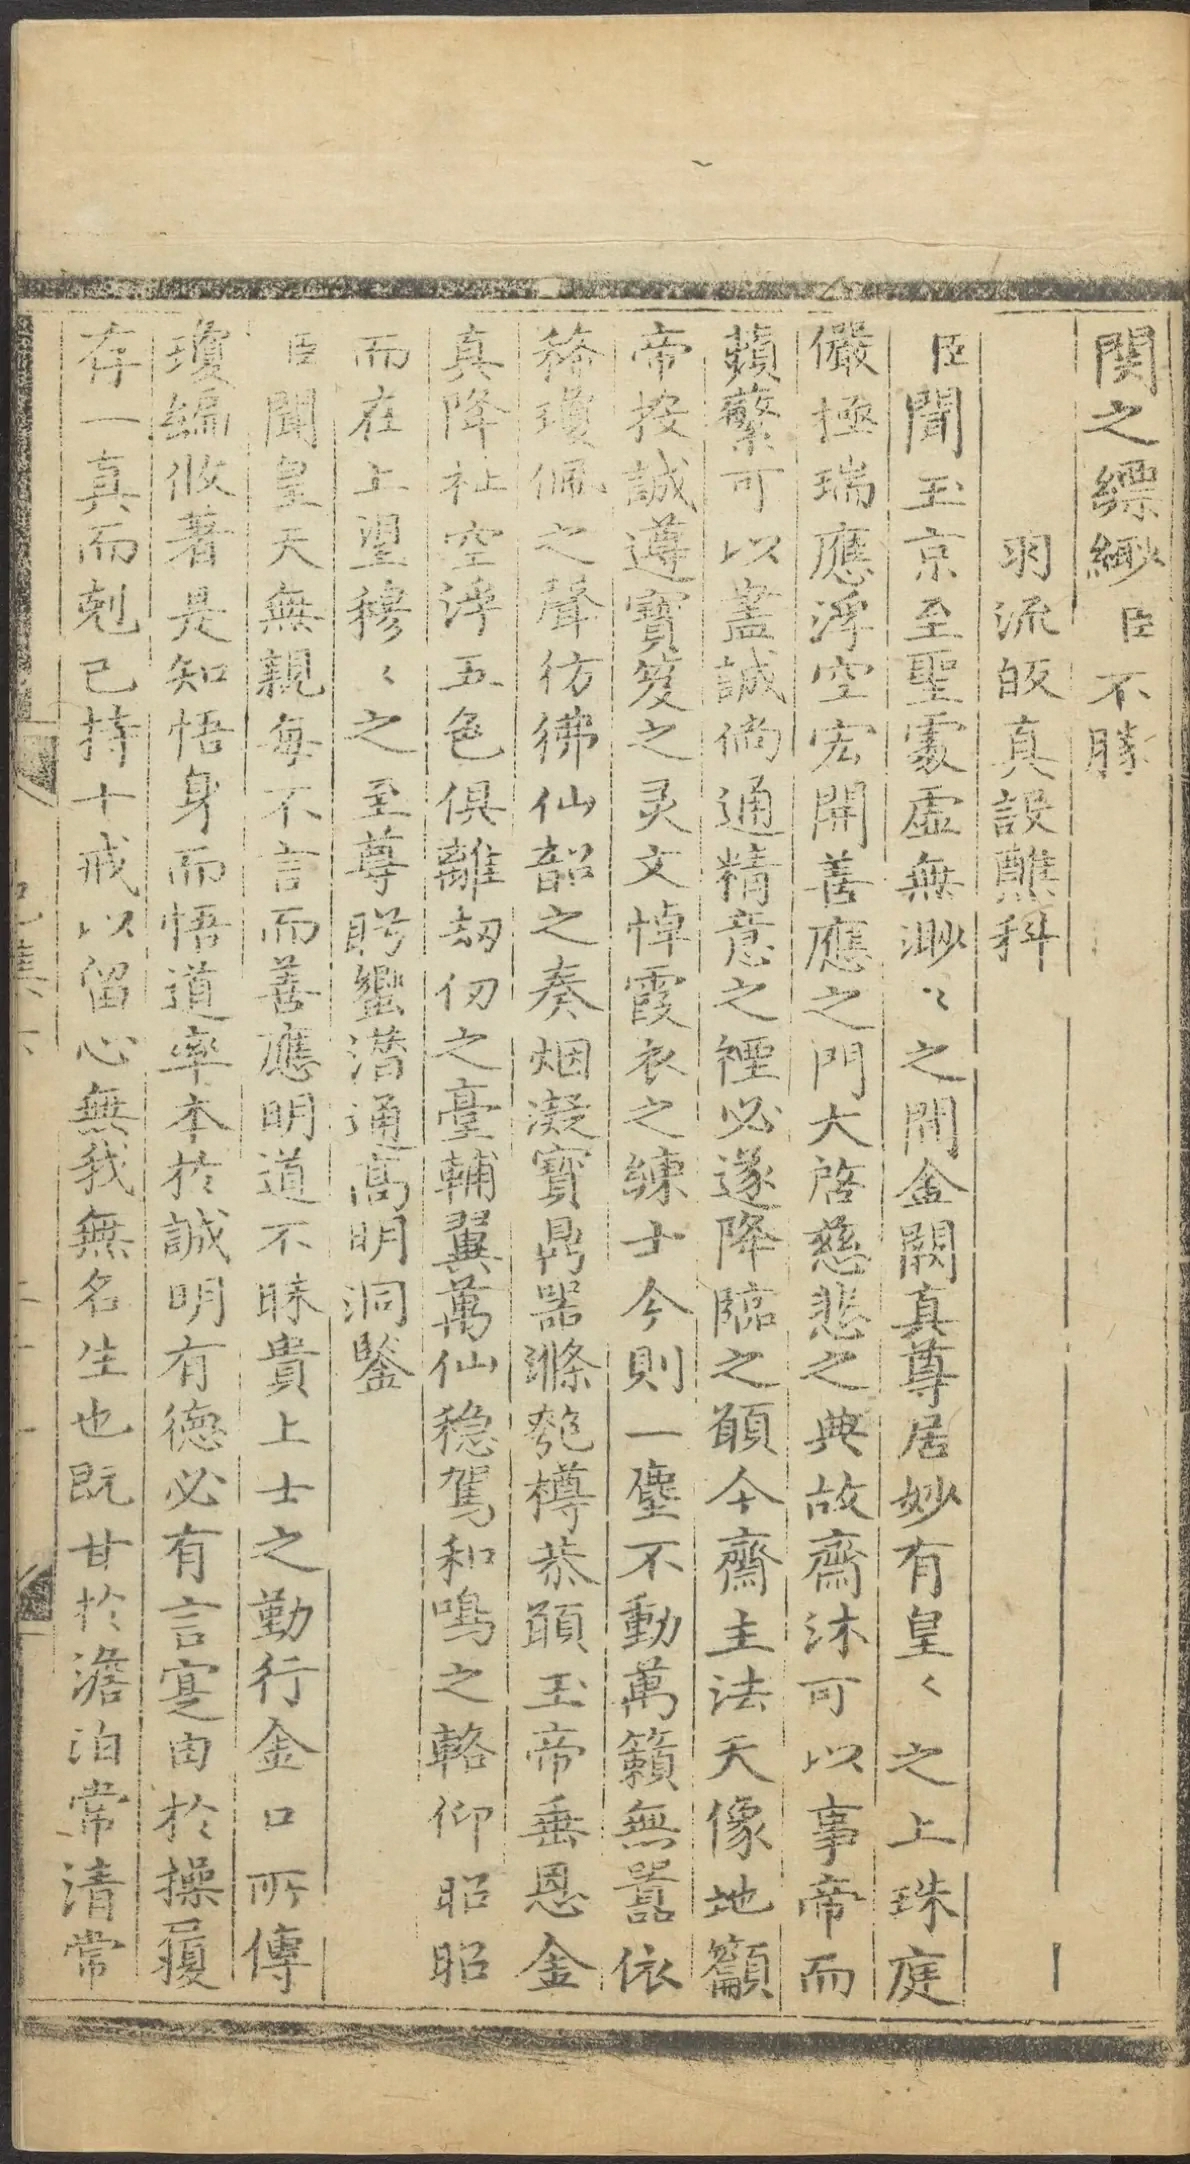 関之縹緲臣不勝
羽流皈真設醮科
臣聞玉京至聖處虛無渺〻之間金闕真尊居妙有皇〻之上珠庭
儼極瑞應浮空宏開善應之門大啓慈悲之典故齋沐可以事帝而
蘋蘩可以羞誠倘通精意之禋必遂降臨之願今齋主法天像地籲
帝按誠遵寶笈之灵文悼霞衣之練士今則一塵不動萬籟無囂依
瓊佩之聲彷彿仙韶之奏烟凝寶鼎器滌匏樽恭願玉帝垂恩金
真降祉空浮五色俱離刼仞之臺輔翼萬仙稳駕和鳴之輅仰昭昭
而在上望穆〻之至尊肹蠁潛通高明洞鑒
臣聞皇天無親每不言而善應明道不昧貴上士之勤行金口所傳
瓊編攸著是知悟身而悟道率本於誠明有德必有言寔由於操履
存一真而剋己持十戒以留心無我無名生也既甘於澹泊常清常